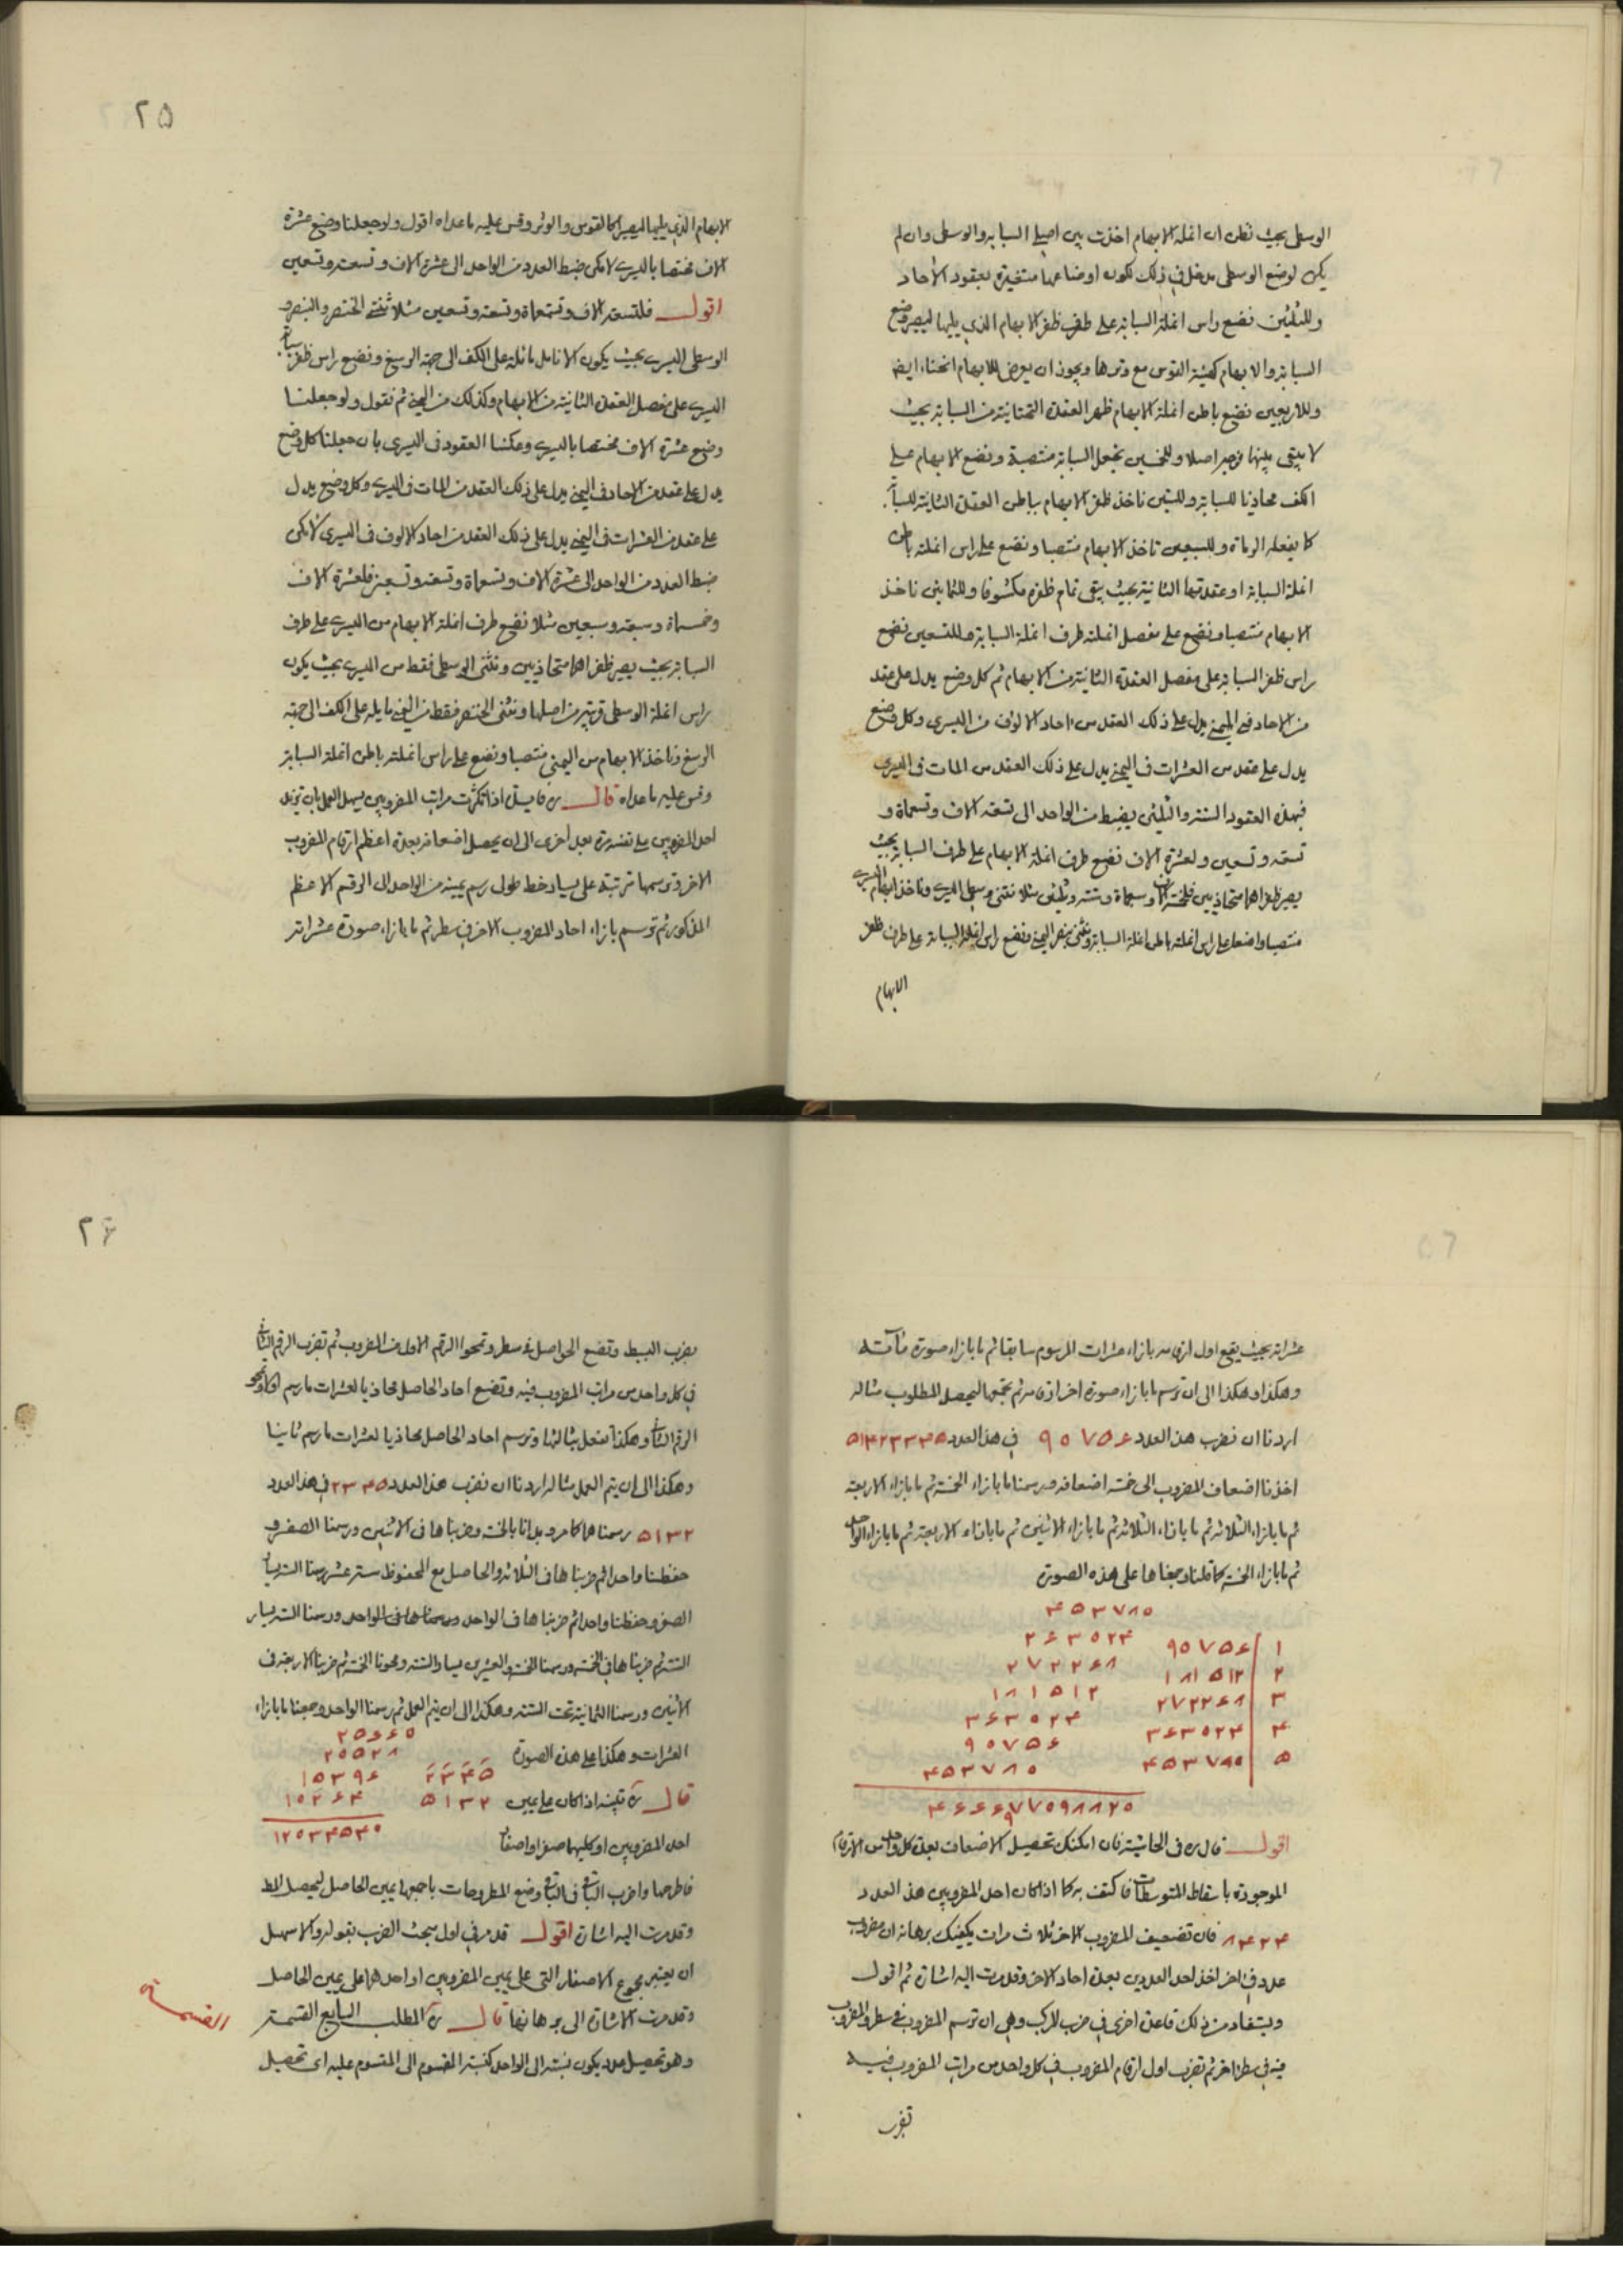 الوسطى بحيث تظن ان انملة الابهام اخذت بين اصلي السبابه والوسطى وان لم
يكن لوضع الوسطى مدخل في ذلك لكون اوضاعها متغيرة بعقود الآحاد
وللثلثين نضع راس انملة السبابه على طرف ظفر الابهام الذي يليها ليصير وضع
السبابه والابهام كهيئة القوس مع وترها ويجوز ان يعرض للابهام انحناء ايضا
وللاربعين نضع باطن انملة الابهام ظهر العقدة التحتانية من السبابه بحيث
لا يبقى بينهما فرجه اصلا وللخمسين نجعل السبابه منتصبة ونضع الابهام على
الكف محاذيا للسبابه وللستين ناخذ ظفر الابهام بباطن العقدة الثانية للسبابه
كما يفعله الرماة وللسبعين ناخذ الابهام منتصبا ونضع على راس انملته باطن
انملة السبابه او عقدتها الثانية بحيث يبقى تمام ظفره مكشوفا وللثمانين ناخذ
الابهام منتصبا ونضع على مفصل انملته طرف انملة السبابه وللتسعين نضع
راس ظفر السبابه على مفصل العقدة الثانية من الابهام ثم كل وضع يدل على عقد
من الاحاد في اليمنى يدل على ذلك العقد من احاد الالوف من اليسرى وكل وضع
يدل على عقد من العشرات في اليمنى يدل على ذلك العقد من المات في اليسرى
فبهذه العقود الستة والثلثين يضبط من الواحد الى تسعه الاف وتسعماة و
تسعه وتسعين ولعشرة الاف نضع طرف انملة الابهام على طرف السبابه بحيث
يصير ظفراهما متحاذيين فلخمسة الاف وسبعماة وستة وثلثين مثلا نثنى وسطى اليسرى وناخذ ابهام اليسرى
منتصبا واضعا على راس انملته باطن انملة السبابه ونثنى بنصر اليمنى ونضع راس انملة السبابه على طرف ظفر
الابهام
٢٥
الابهام الذي يليها ليصير كالقوس والوتر وقس عليه ما عداه اقول ولو جعلنا وضع عشرة
الاف مختصا باليسرى لامكن ضبط العدد من الواحد الى عشرة الاف وتسعه وتسعين
اقول فلتسعة الاف وتسعماة وتسعه وتسعين مثلا نثنى الخنصر والبنصر و
الوسطى اليسرى بحيث يكون الانامل مائلة على الكف الى جهة الرسغ ونضع راس ظفر سبابه
اليسرى على مفصل العقدة الثانية من الابهام وكذلك من اليمنى ثم نقول ولو جعلنا
وضع عشرة الاف مختصا باليسرى وعكسنا العقود في اليسرى بان جعلنا كل وضع
يدل على عقد من الاحاد في اليمنى يدل على ذلك العقد من المات في اليسرى وكل وضع يدل
على عقد من العشرات في اليمنى يدل على ذلك العقد من احاد الالوف في اليسرى لامكن
ضبط العدد من الواحد الى عشرة الاف وتسعماة وتسعه وتسعين فلعشرة الاف
وخمسماة وسبعه وسبعين مثلا نضع طرف انملة الابهام من اليسرى على طرف
السبابه بحيث يصير ظفراهما متحاذيين ونثنى الوسطى فقط من اليسرى بحيث يكون
راس انملة الوسطى قريبه من اصلها ونثنى الخنصر فقط من اليمنى مايله على الكف الى جهة
الرسغ وناخذ الابهام من اليمنى منتصبا ونضع على راس انملته باطن انملة السبابه
وقس عليه ما عداه قال ره فايدة اذا تكثرت مراتب المضروبين يسهل العمل بان تزيد
احد المضروبين على نفسه مرة بعد اخرى الى ان يحصل اضعافه بعدة اعظم ارقام المضروب
الاخر وترسمها مرتبة على يسار خط طولى رسم يمينه من الواحد الى الرقم الاعظم
المذكور ثم ترسم بازاء احاد المضروب الاخر في سطر ثم ما بازاء صورة عشراته
عشراته بحيث يقع اول ارقامه بازاء عشرات المرسوم سابقا ثم ما بازاء صورة مآته
وهكذا وهكذا الى ان ترسم ما بازاء صورة اخر ارقامه ثم تجمع ليحصل المطلوب مثاله
اردنا ان نضرب هذا العدد ٩٠٧٥۶ في هذا العدد ٥١۴٢٣٣۴٥
اخذنا اضعاف المضروب الى خمسة اضعافه ورسمنا ما بازاء الخمسة ثم ما بازاء الاربعة
ثم ما بازاء الثلاثه ثم ما بازاء الثلاثه ثم ما بازاء الاثنين ثم ما بازاء الاربعة ثم ما بازاء الواحد
ثم ما بازاء الخمسة كما قلنا وجمعناها على هذه الصورة
۴٥٣٧٨٠
٣۶٣٠٢۴
٢٧٢٢۶٨
١٨١٥١٢
٣۶٣٠٢۴
٩٠٧٥۶
۴٥٣٧٨٠
١ ٩٠٧٥۶
٢ ١٨١٥١٢
٣ ٢٧٢٢۶٨
۴ ٣۶٣٠٢۴
٥ ۴٥٣٧٨٠
اقول قال ره في الحاشية فان امكنك تحصيل الاضعاف بعدة كل واحد من الارقام
الموجودة باسقاط المتوسطات فاكتف به كما اذا كان احد المضروبين هذا العدد
٨۴٢۴ فان تضعيف المضروب الاخر ثلاث مرات يكفيك برهانه ان مضروب
عدد في اخر اخذ احد العددين بعدة احاد الاخر وقد مرت اليه اشارة ثم اقول
ويستفاد من ذلك قاعدة اخرى في ضرب المركب وهي ان ترسم المضروب في سطر والمضروب
فيه في سطر اخر ثم تضرب اول ارقام المضروب في كل واحد من مراتب المضروب فيه
تضرب
٢۶
بضرب البسيط وتضع الحواصل في سطر وتمحوا الرقم الاول من المضروب ثم تضرب الرقم الثاني
في كل واحد من مراتب المضروب فيه وتضع احاد الحاصل محاذيا لعشرات ما رسم اولا وتمحو
الرقم الثاني وهكذا تفعل بثالثها وترسم احاد الحاصل محاذيا لعشرات ما رسم ثانيا
وهكذا الى ان يتم العمل مثاله اردنا ان نضرب هذا العدد ٢٣۴٥ في هذا العدد
٥١٣٢ رسمناها كما مر وبدانا بالخمسة وضربناها في الاثنين ورسمنا الصفر و
حفظنا واحدا ثم ضربناها في الثلاثه والحاصل مع المحفوظ ستة عشر رسمنا الستة يسار
الصفر وحفظنا واحدا ثم ضربناها في الواحد ورسمنا الستة يسار
الستة ثم ضربناها في الخمسة ورسمنا الخمسة والعشرين يسار الستة ومحونا الخمسة ثم ضربنا الاربعة في
الاثنين ورسمنا الثمانية تحت الستة وهكذا الى ان يتم العمل ثم رسمنا الواحد وجمعنا ما بازاء
العشرات وهكذا على هذه الصورة
٢٣۴٥
٥١٣٢
٢٥۶۶٠
٢٠٥٢٨
١٥٣٩۶
١٠٢۶۴
١٢٠٣۴٥۴٠
قال ره تنبيه اذا كان على يمين
احد المضروبين او كليهما صفر او اصفار
فاطرحها واضرب الباقي في الباقي وضع المطروحات باجمعها يمين الحاصل ليحصل المط
وقد مرت اليه اشارة اقول قد مر في اول مبحث الضرب بقوله والاسهل
ان يعتبر مجموع الاصفار التى على يمين المضروبين او احدهما على يمين الحاصل
وقد مرت الاشارة الى برهانها قال ره المطلب السابع القسمة
القسمة
وهو تحصيل عدد يكون نسبته الى الواحد كنسبة المقسوم الى المقسوم عليه اى تحصيل